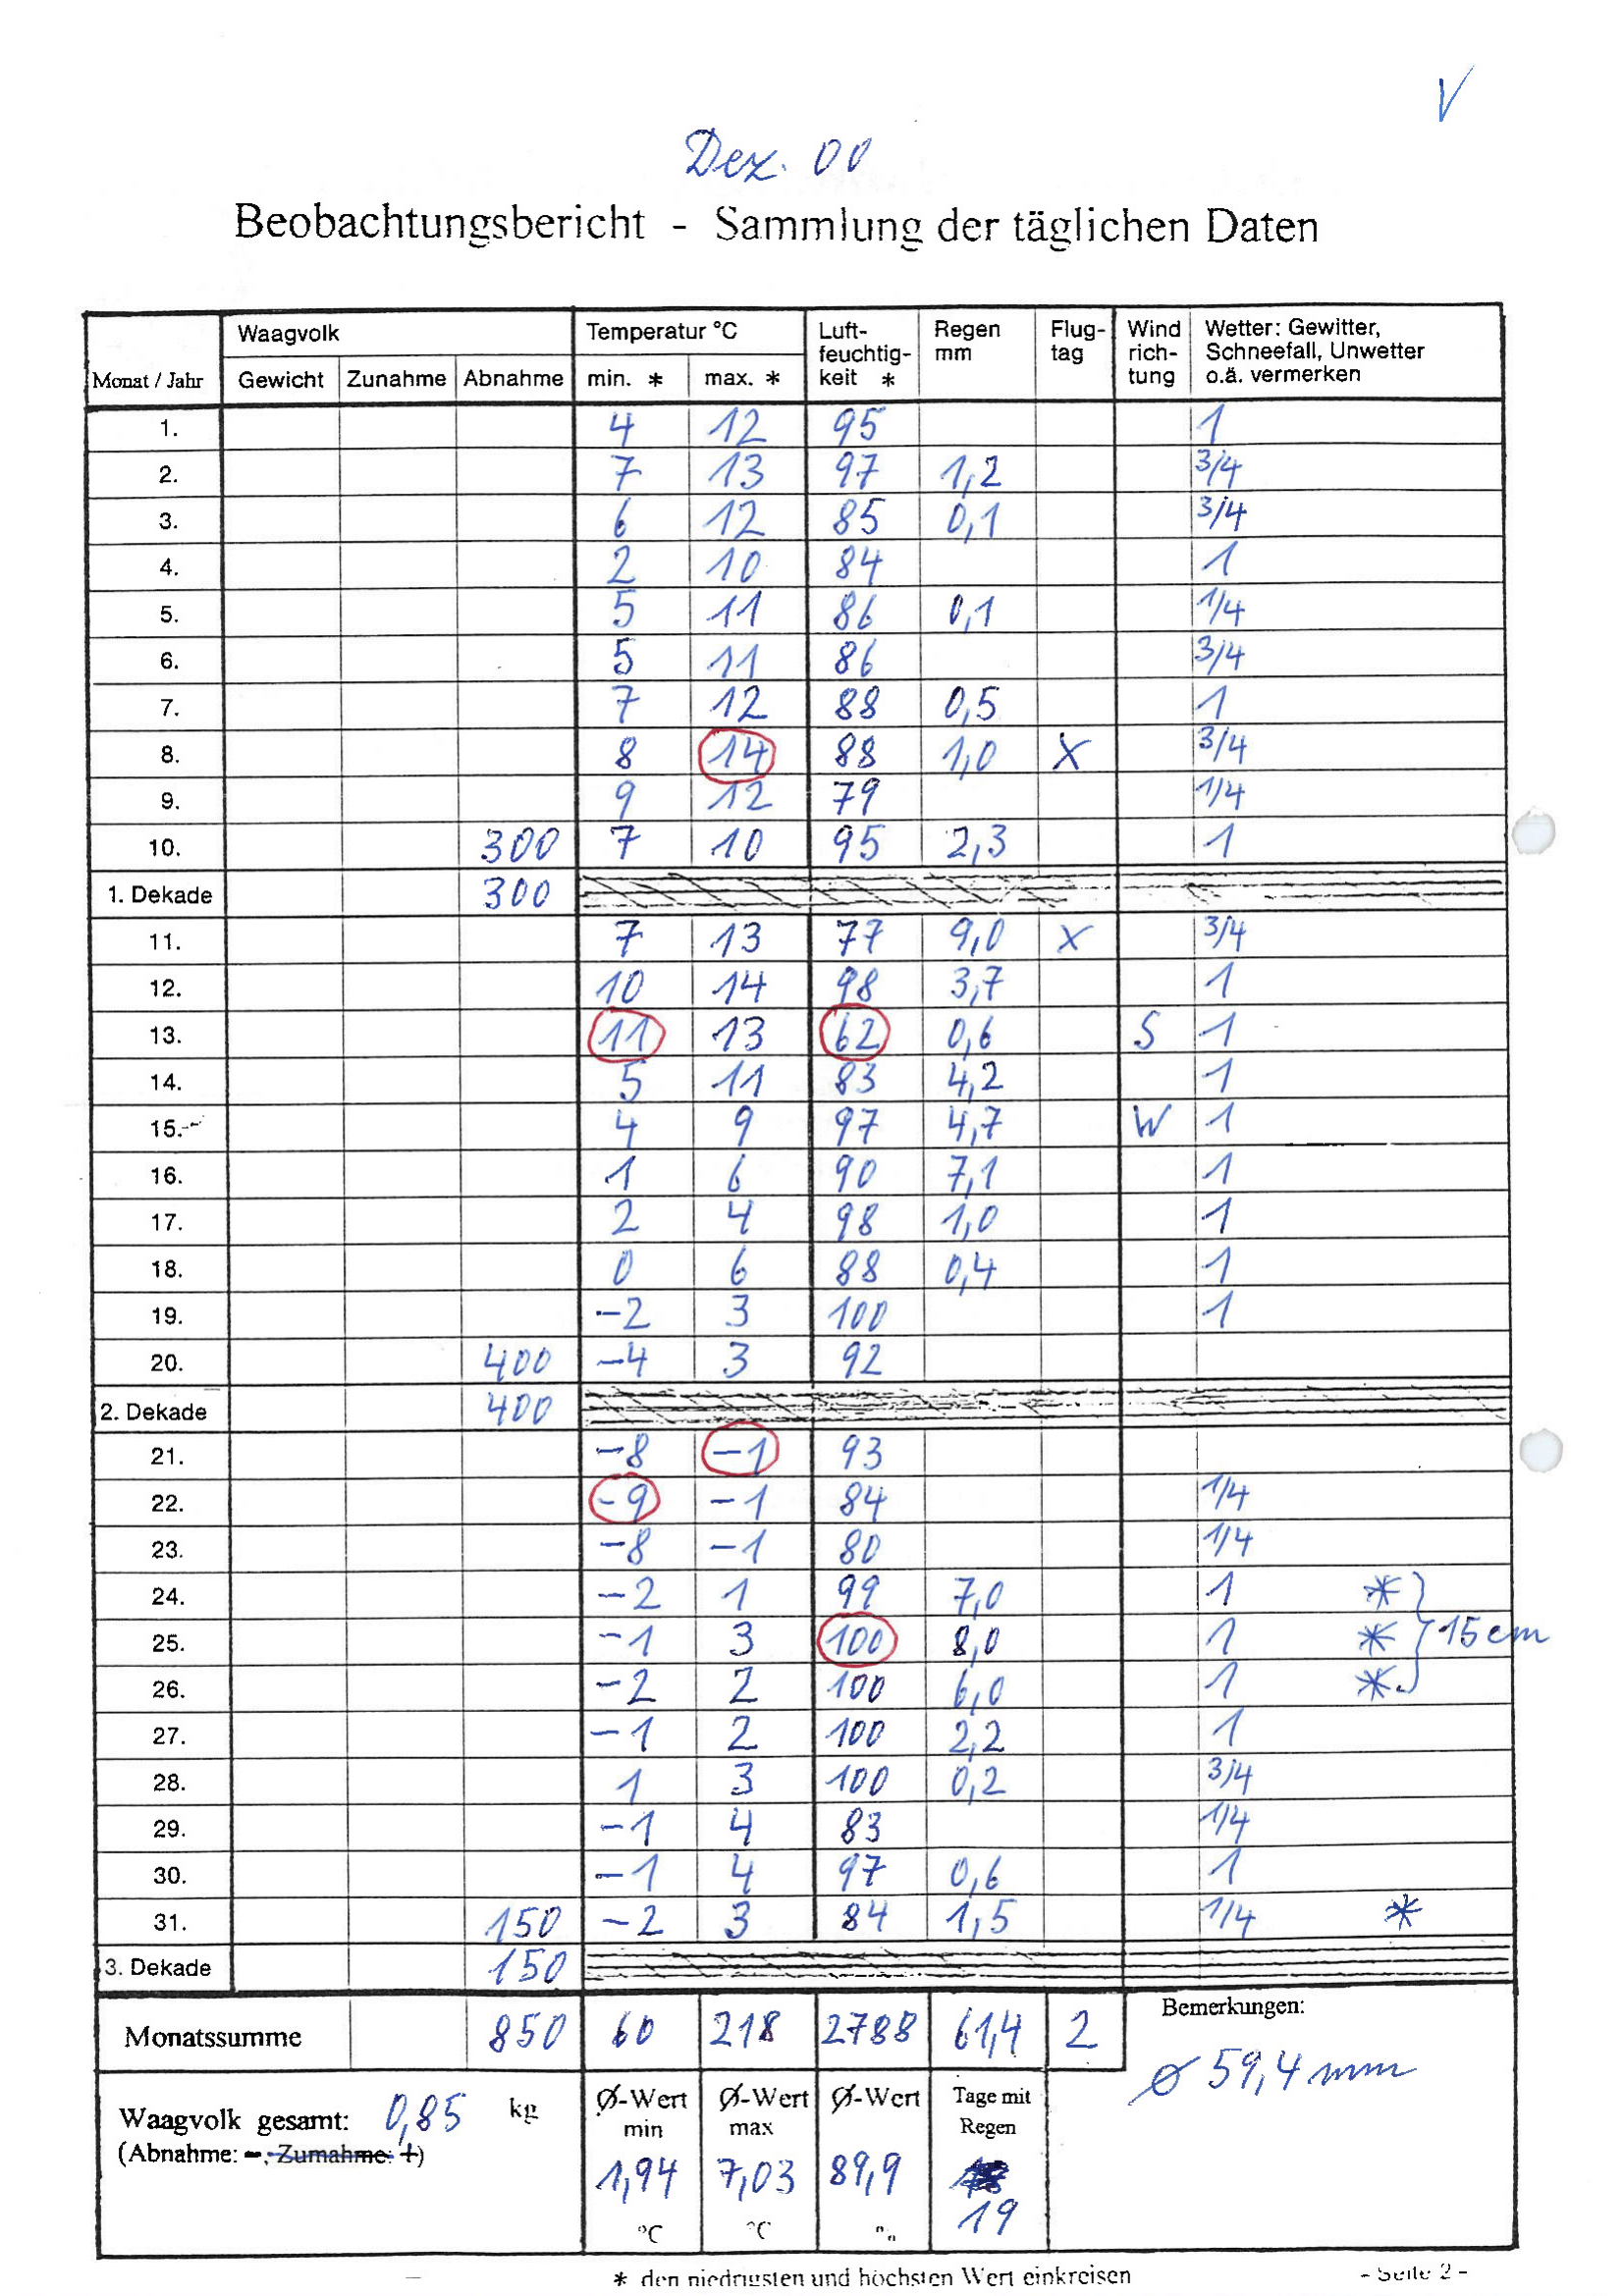 V
Dez. 00
Beobachtungsbericht - Sammlung der täglichen Daten
Monat / Jahr Waagvolk Gewicht Zunahme Abnahme Temperatur °C min. * max. * Luft-feuchtig-keit * Regen mm Flug-tag Wind rich-tung Wetter: Gewitter, Schneefall, Unwetter o.ä. vermerken
1. 4 12 95 1
2. 7 13 97 1,2 3/4
3. 6 12 85 0,1 3/4
4. 2 10 84 1
5. 5 11 86 0,1 1/4
6. 5 11 86 3/4
7. 7 12 88 0,5 1
8. 8 14 88 1,0 X 3/4
9. 9 12 79 1/4
10. 300 7 10 95 2,3 1
1. Dekade 300
11. 7 13 77 9,0 X 3/4
12. 10 14 98 3,7 1
13. 11 13 62 0,6 S 1
14. 5 11 83 4,2 1
15. 4 9 97 4,7 W 1
16. 1 6 90 7,1 1
17. 2 4 98 1,0 1
18. 0 6 88 0,4 1
19. -2 3 100 1
20. 400 -4 3 92
2. Dekade 400
21. -8 -1 93
22. -9 -1 84 1/4
23. -8 -1 80 1/4
24. -2 1 99 7,0 1 *
25. -1 3 100 8,0 1 * } 15 cm
26. -2 2 100 6,0 1 *
27. -1 2 100 2,2 1
28. 1 3 100 0,2 3/4
29. -1 4 83 1/4
30. -1 4 97 0,6 1
31. 150 -2 3 84 1,5 1/4 *
3. Dekade 150
Monatssumme 850 60 218 2788 61,4 2
Bemerkungen:
Ø 59,4 mm
Waagvolk gesamt: 0,85 kg
(Abnahme: -, Zumahme: +)
Ø-Wert min Ø-Wert max Ø-Wert Tage mit Regen
1,94 7,03 89,9
19
°C °C
* den niedrigsten und höchsten Wert einkreisen
- Seite 2 -